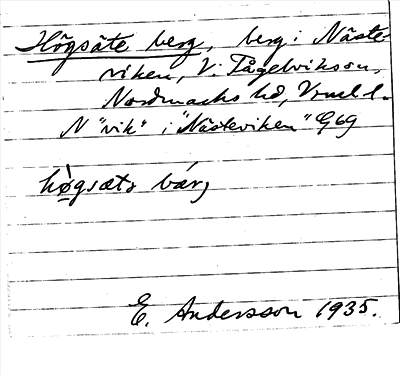 Högsäte berg, berg i Näste-
viken, V. Fågelvik sn,
Nordmarks hd, Vrml l.
N "vik" i "Nästeviken" G 69
högsæts bær,
E. Andersson 1935.